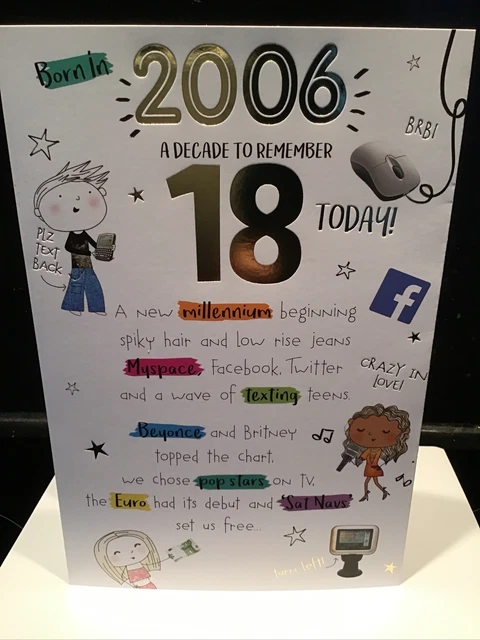 Born In
2006
A DECADE TO REMEMBER
18
TODAY!
BRB!
PLZ
TEXT
BACK
f
A new millennium beginning
spiky hair and low rise jeans
Myspace, Facebook, Twitter
and a wave of texting teens.
CRAZY IN
LOVE!
Beyonce and Britney
topped the chart,
we chose pop stars on TV,
the Euro had its debut and 'Sat Navs'
set us free...
turn left!